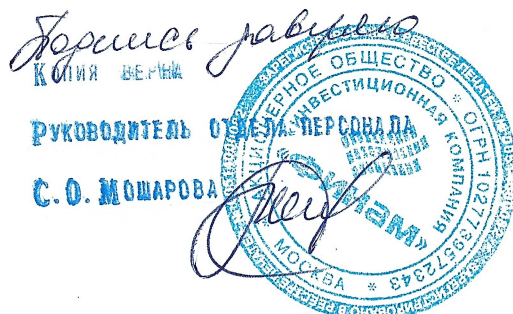 Подпись заверяю
КОПИЯ ВЕРНА
РУКОВОДИТЕЛЬ ОТДЕЛА ПЕРСОНАЛА
С.О. МОШАРОВА
АКЦИОНЕРНОЕ ОБЩЕСТВО * ОГРН 1027739572343 * МОСКВА
ИНВЕСТИЦИОННАЯ КОМПАНИЯ
«ФИНАМ»